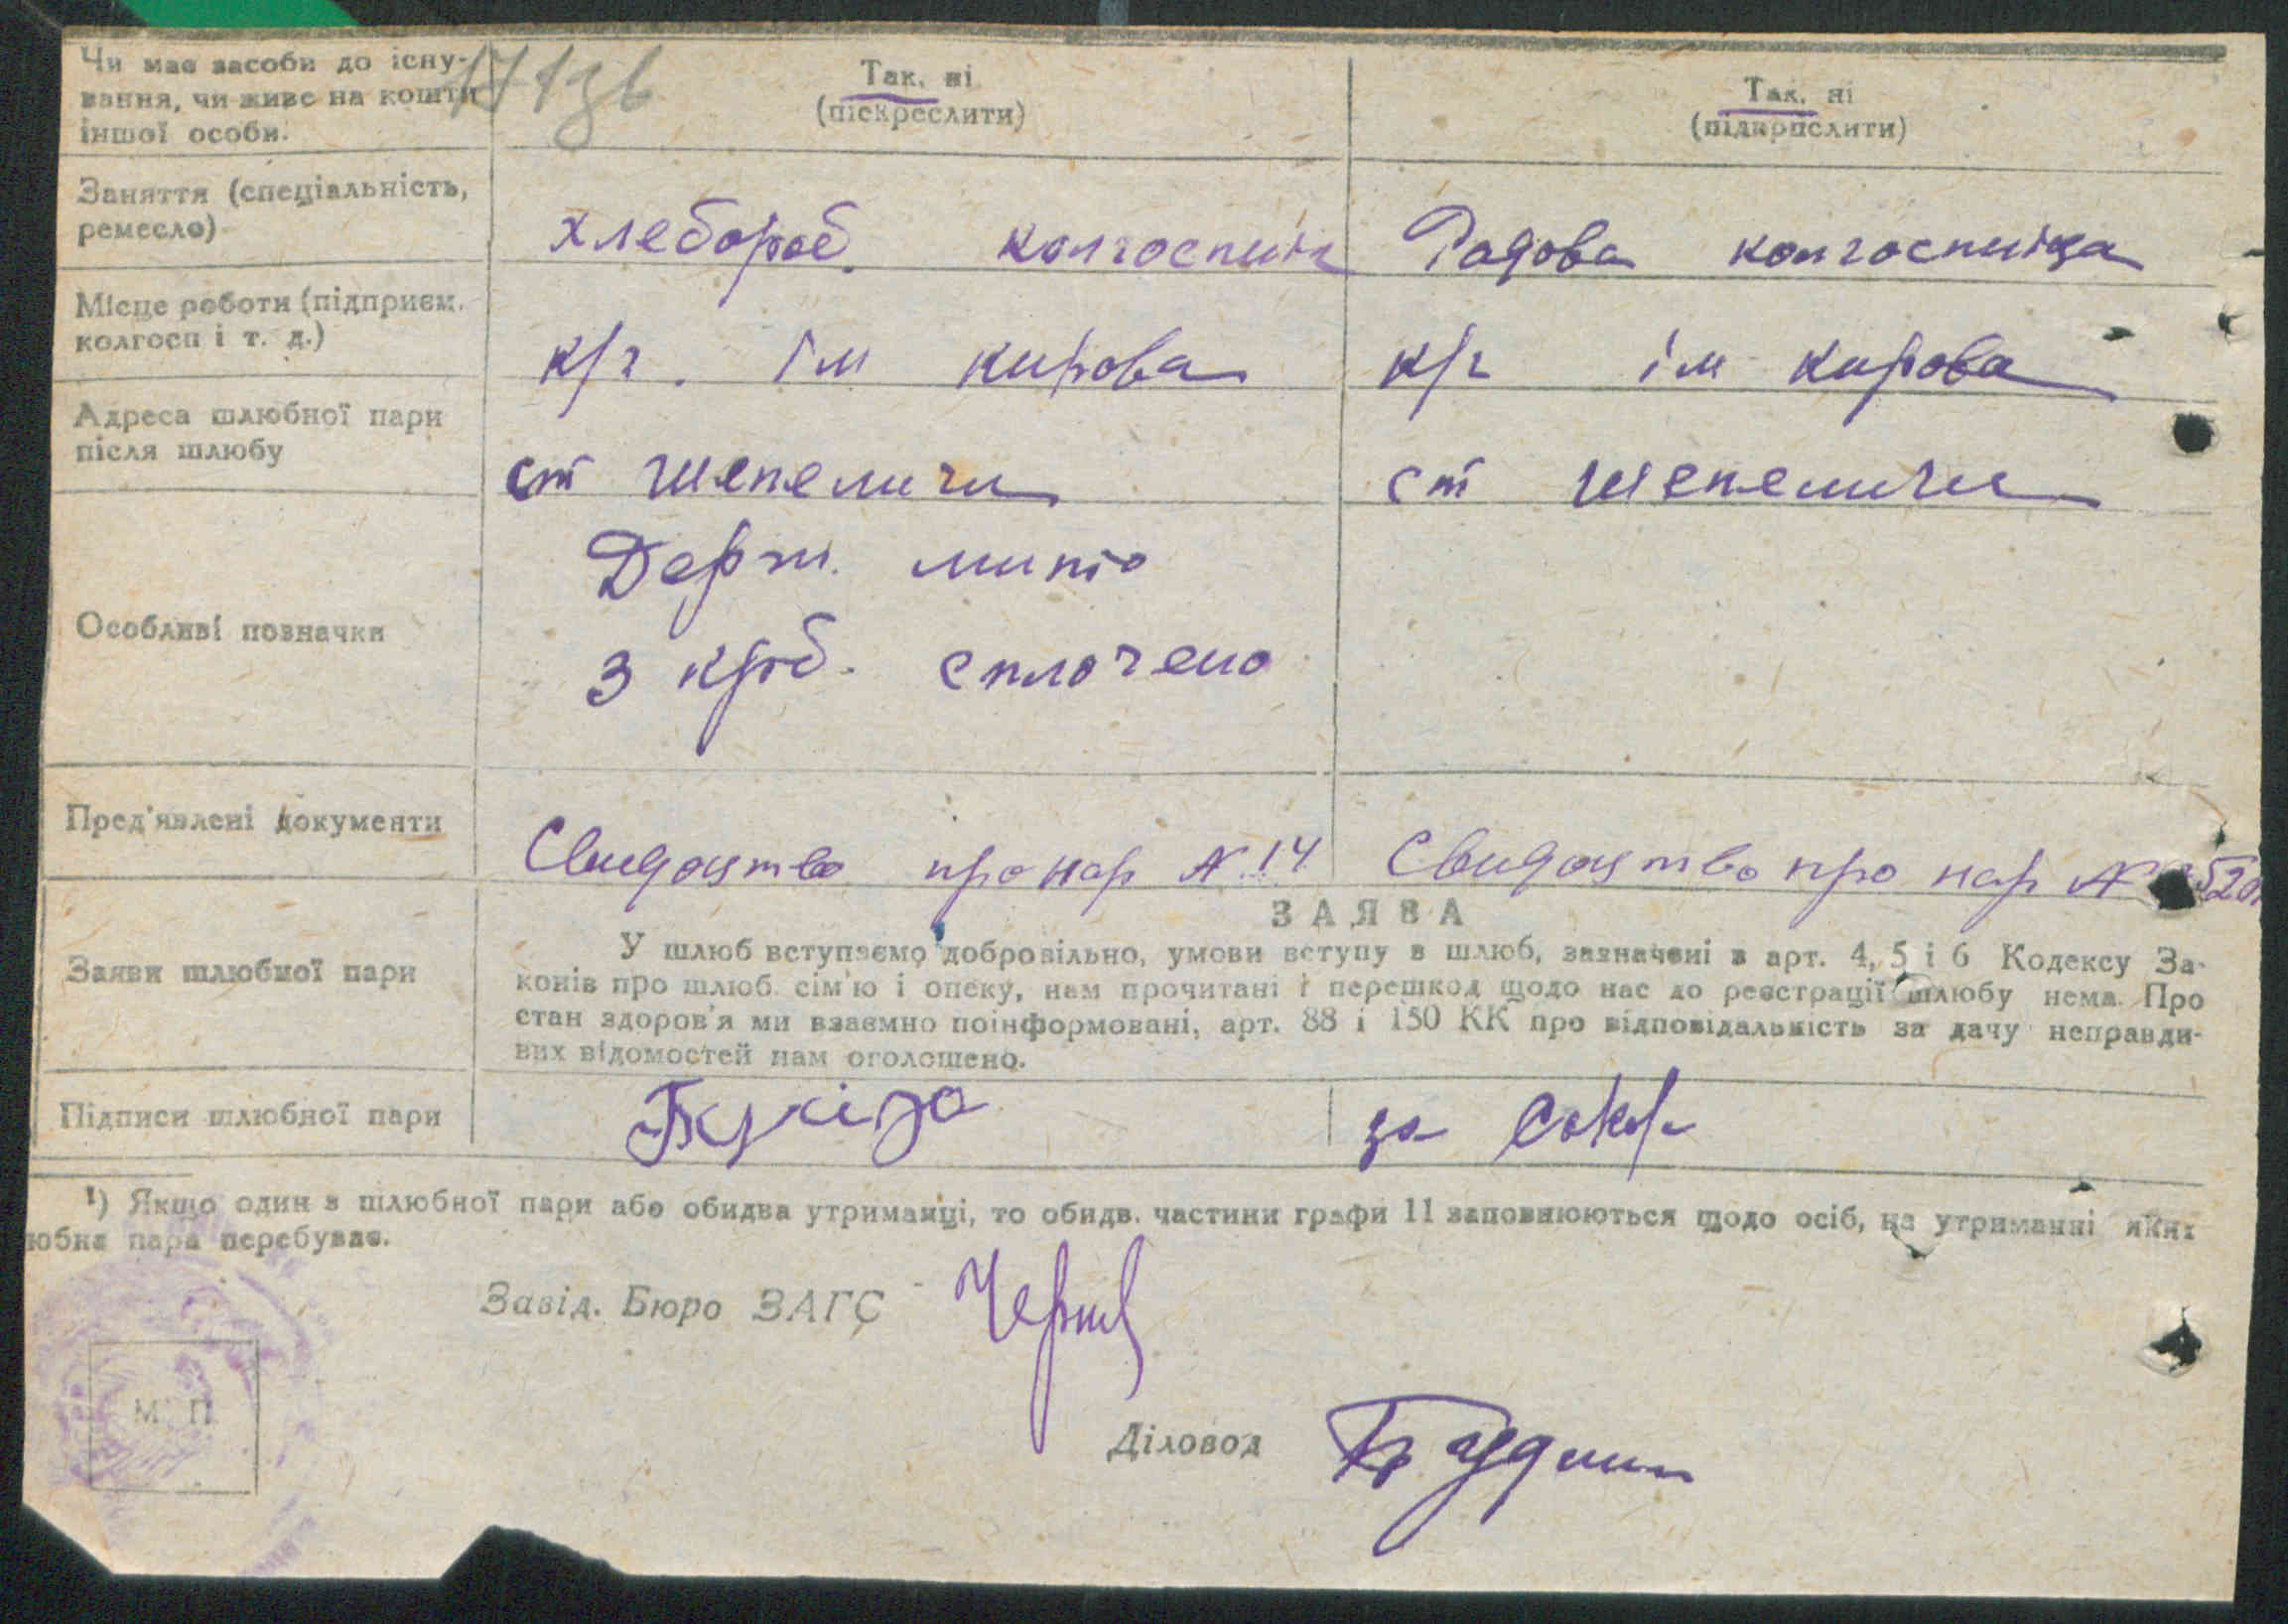 Чи має засоби до існу-
вання, чи живе на кошти
іншої особи.
171зв
Так, ні
(підкреслити)
Так, ні
(підкрпслити)
Заняття (спеціальність,
ремесло)
хлебороб. колгоспник
Рядова колгоспниця
Місце роботи (підприєм.
колгосп і т. д.)
к/г. ім кирова
к/г ім кирова
Адреса шлюбної пари
після шлюбу
ст шепеличи
ст шепеличи
Особливі позначки
Держ. мито
3 крб. сплочено
Пред'явлені документи
Свидоцтво про нар № 14
Свидоцтво про нар №
ЗАЯВА
Заяви шлюбної пари
У шлюб вступаємо добровільно, умови вступу в шлюб, зазначені в арт. 4, 5 і 6 Кодексу За-
конів про шлюб. сім'ю і опеку, нам прочитані і перешкод щодо нас до реєстрації шлюбу нема. Про
стан здоров'я ми взаємно поінформовані, арт. 88 і 150 КК про відповідальність за дачу неправди-
вих відомостей нам оголошено.
Підписи шлюбної пари
за
¹) Якщо один з шлюбної пари або обидва утриманці, то обидв. частини графи 11 заповнюються щодо осіб, на утриманні яких
юбна пара перебуває.
Завід. Бюро ЗАГС
М. П.
Діловод